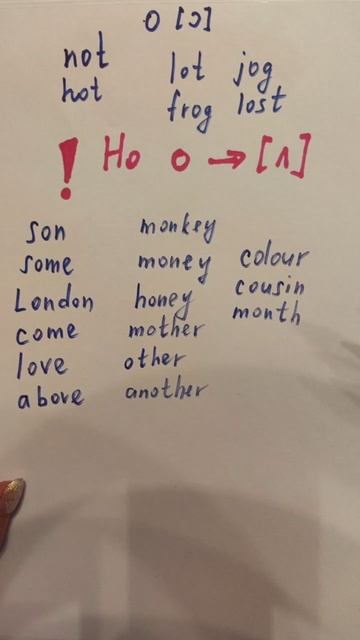 o [ɔ]
not lot jog
hot frog lost
! Но o → [ʌ]
son monkey
some money colour
London honey cousin
come mother month
love other
above another